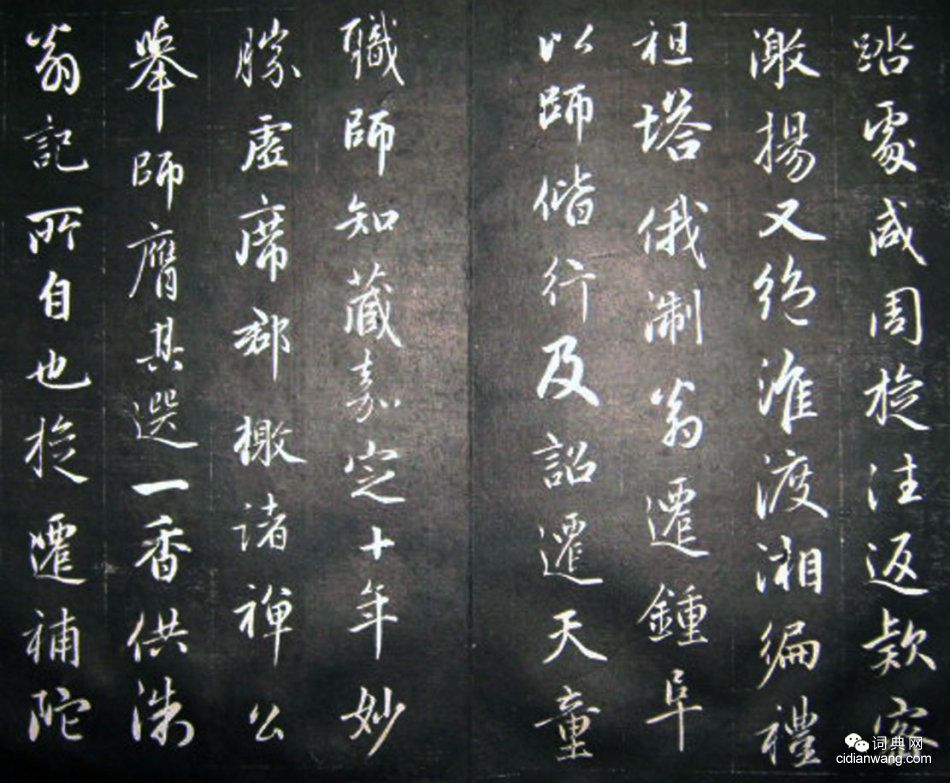 踏處咸周旋往返款密
激揚又絶淮渡湘徧禮
祖塔俄淛翁遷鍾阜
以師偕行及詔遷天童
職師知藏嘉定十年妙
勝虛席郡檄諸禪公
舉師膺其選一香供淛
翁記所自也旋遷補陀
词典网
cidianwang.com